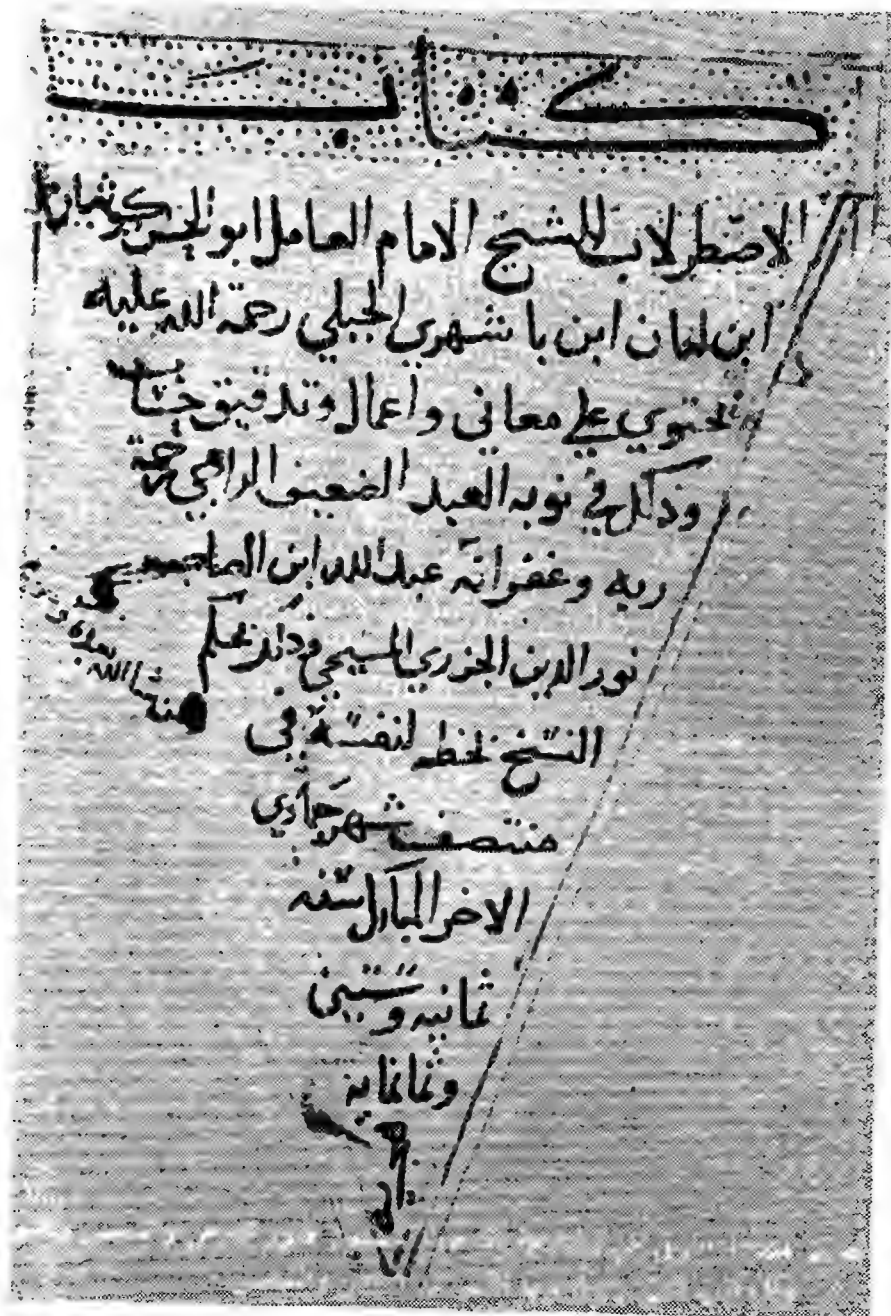 كتاب
الاصطرلاب للشيخ الامام العامل ابو الحسن كوشيار
ابن لبان ابن باشهري الجيلي رحمة الله عليه
يحتوي علي معاني واعمال وتدقيق حساب
وذلك في نوبه العبد الضعيف الراجي رحمة
ربه وغفرانه عبد الله ابن الصاحب
نور الدين الجزري المسيحي وذلك بحكم
النسخ بخطه لنفسه في
منتصف شهر جمادي
الاخر المبارك سنه
ثمانيه وستين
وثمانمايه